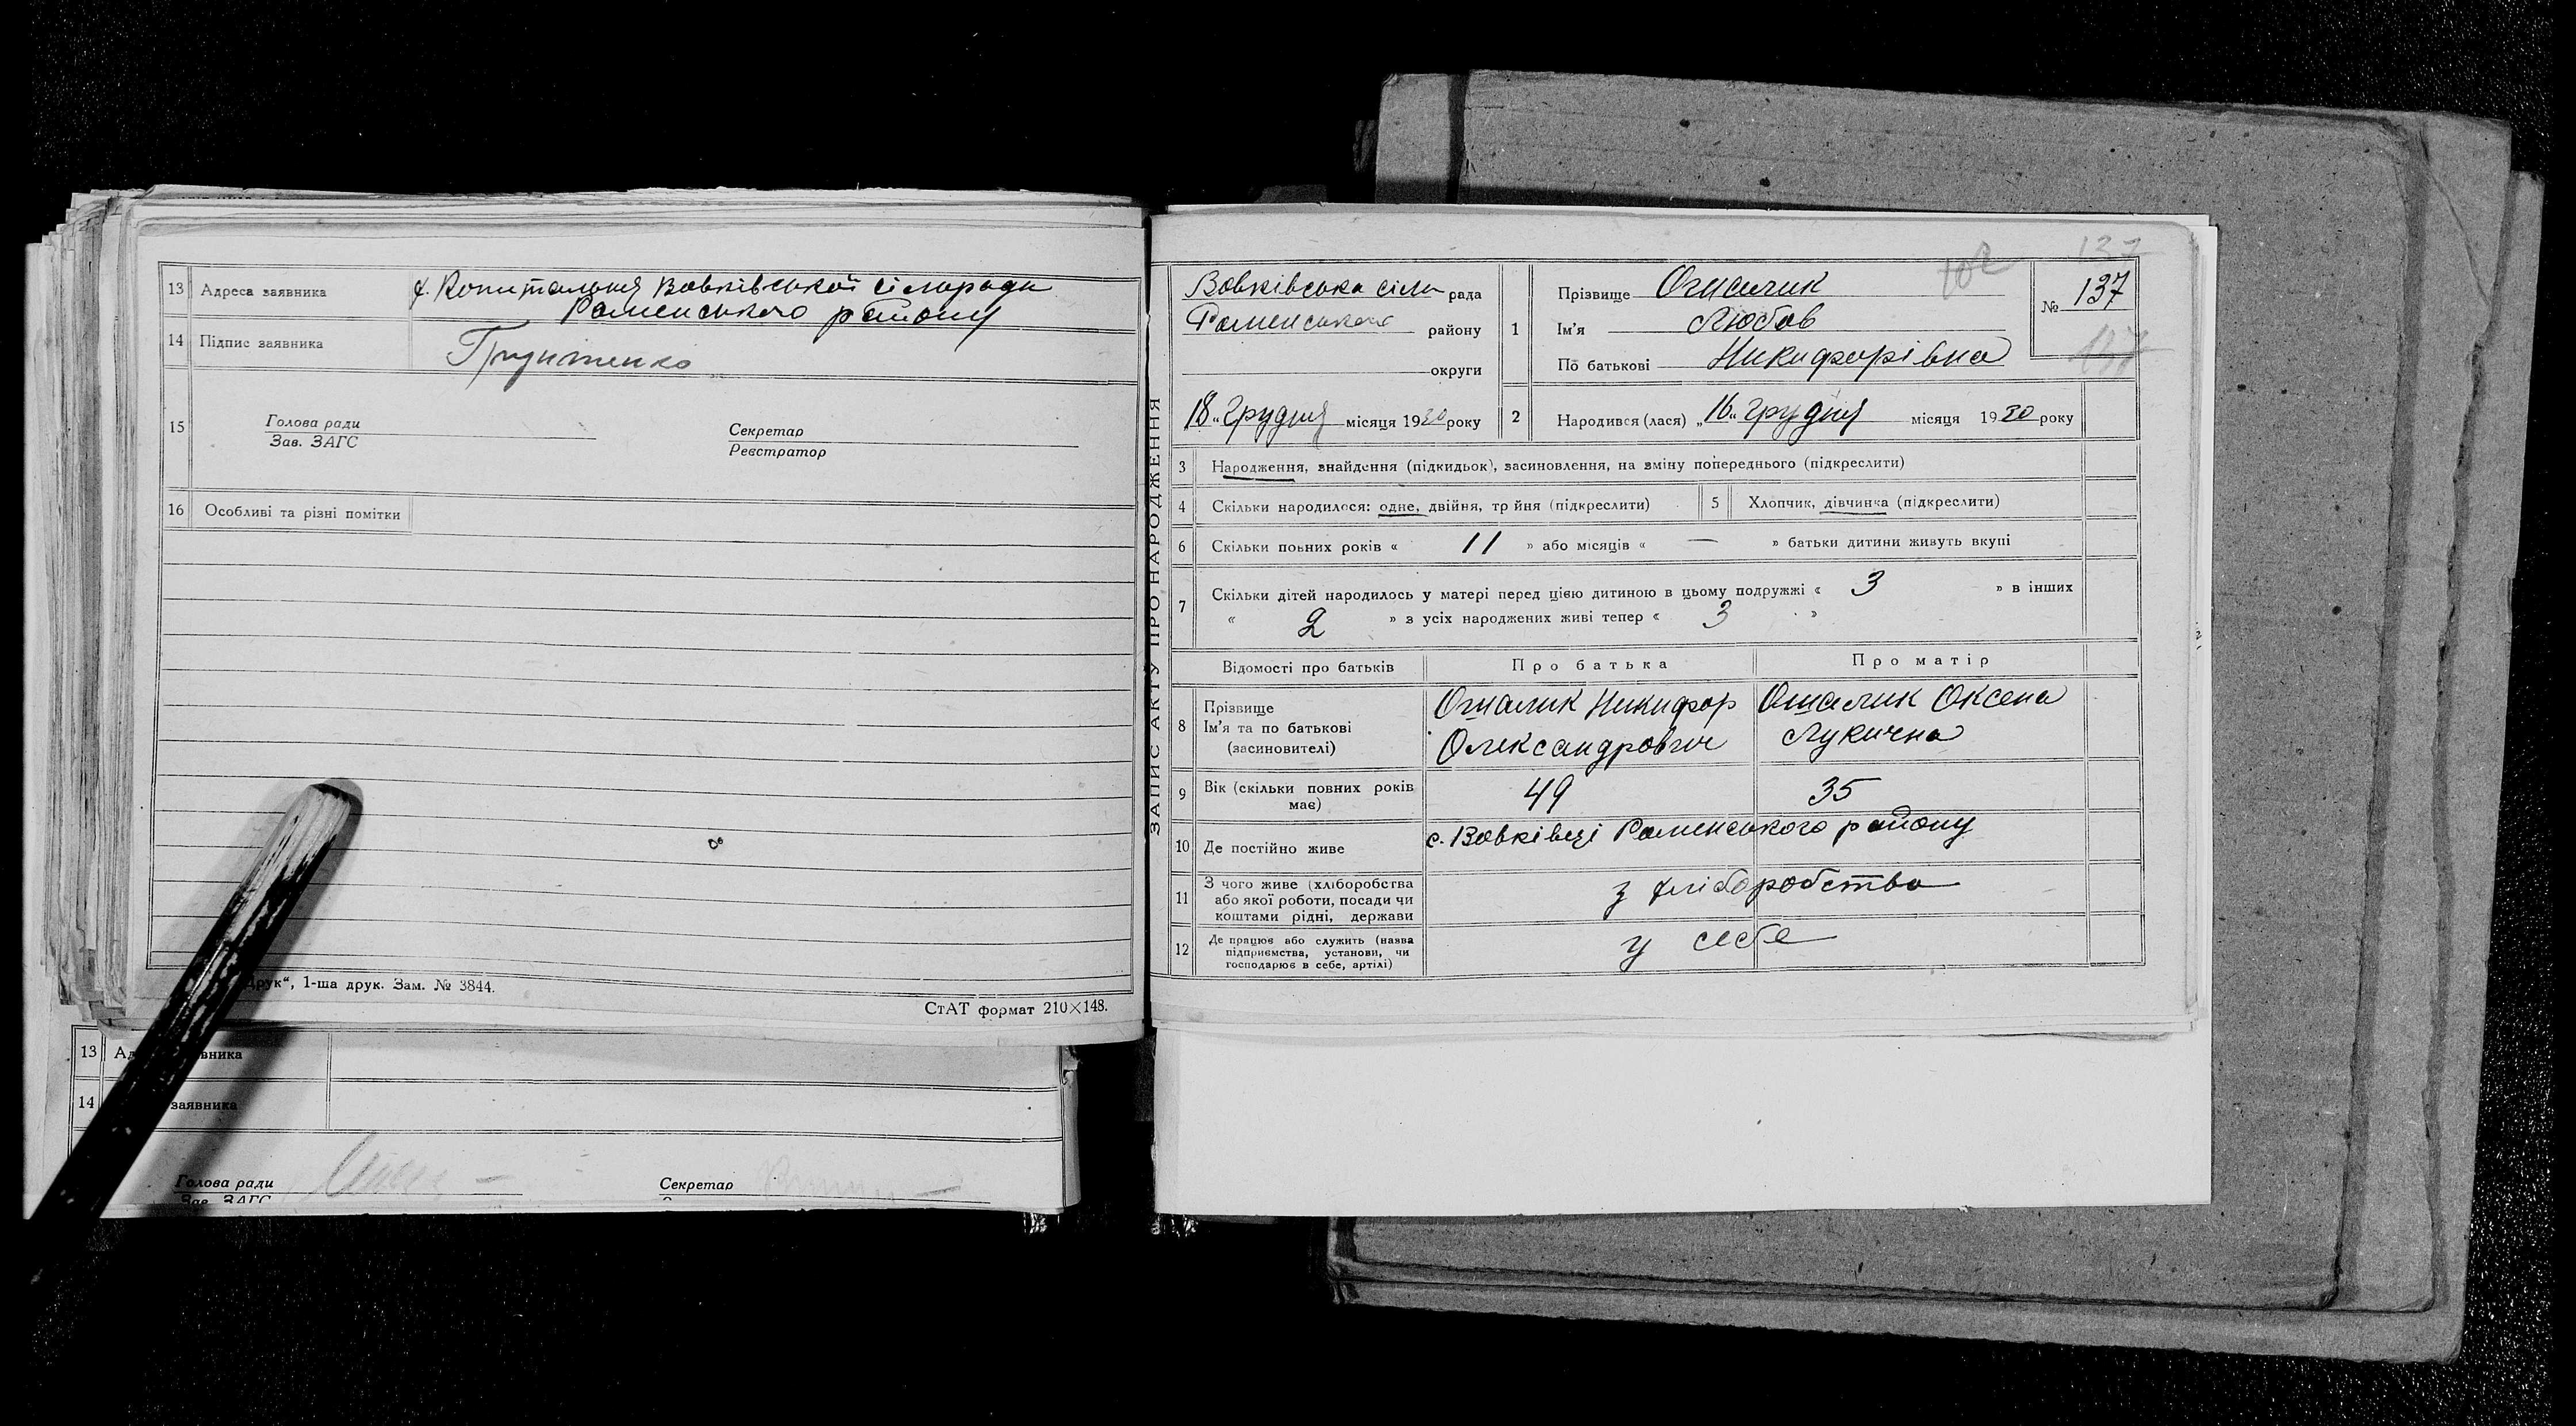 13 Адреса заявника х. Копитальня Вовківської сільради
Роменського району
14 Підпис заявника
15 Голова ради Секретар
Зав. ЗАГС Реєстратор
16 Особливі та різні помітки
Друк“, 1-ша друк. Зам. № 3844.
СтАТ формат 210×148.
13
14 заявника
Голова ради Секретар
Зав. ЗАГС
ЗАПИС АКТУ ПРО НАРОДЖЕННЯ
137
Вовківська сіль рада
Роменського району
округи
„18“ грудня місяця 1930 року
1 Прізвище Огналик
Ім'я Любов
По батькові Никифорівна
№ 137
2 Народився (лася) „16“ грудня місяця 1930 року
3 Народження, знайдення (підкидьок), засиновлення, на зміну попереднього (підкреслити)
4 Скільки народилося: одне, двійня, трійня (підкреслити) 5 Хлопчик, дівчинка (підкреслити)
6 Скільки повних років « 11 » або місяців « — » батьки дитини живуть вкупі
7 Скільки дітей народилось у матері перед цією дитиною в цьому подружжі « 3 » в інших
« 2 » з усіх народжених живі тепер « 3 »
Відомості про батьків Про батька Про матір
8 Прізвище
Ім'я та по батькові
(засиновителі)
Огналик Никифор
Олександрович
Огналик Оксена
Лукична
9 Вік (скільки повних років
має) 49 35
10 Де постійно живе с. Вовківці Роменського району
11 З чого живе (хліборобства
або якої роботи, посади чи
коштами рідні, держави
з хліборобства
12 Де працює або служить (назва
підприємства, установи, чи
господарює в себе, артілі)
у себе